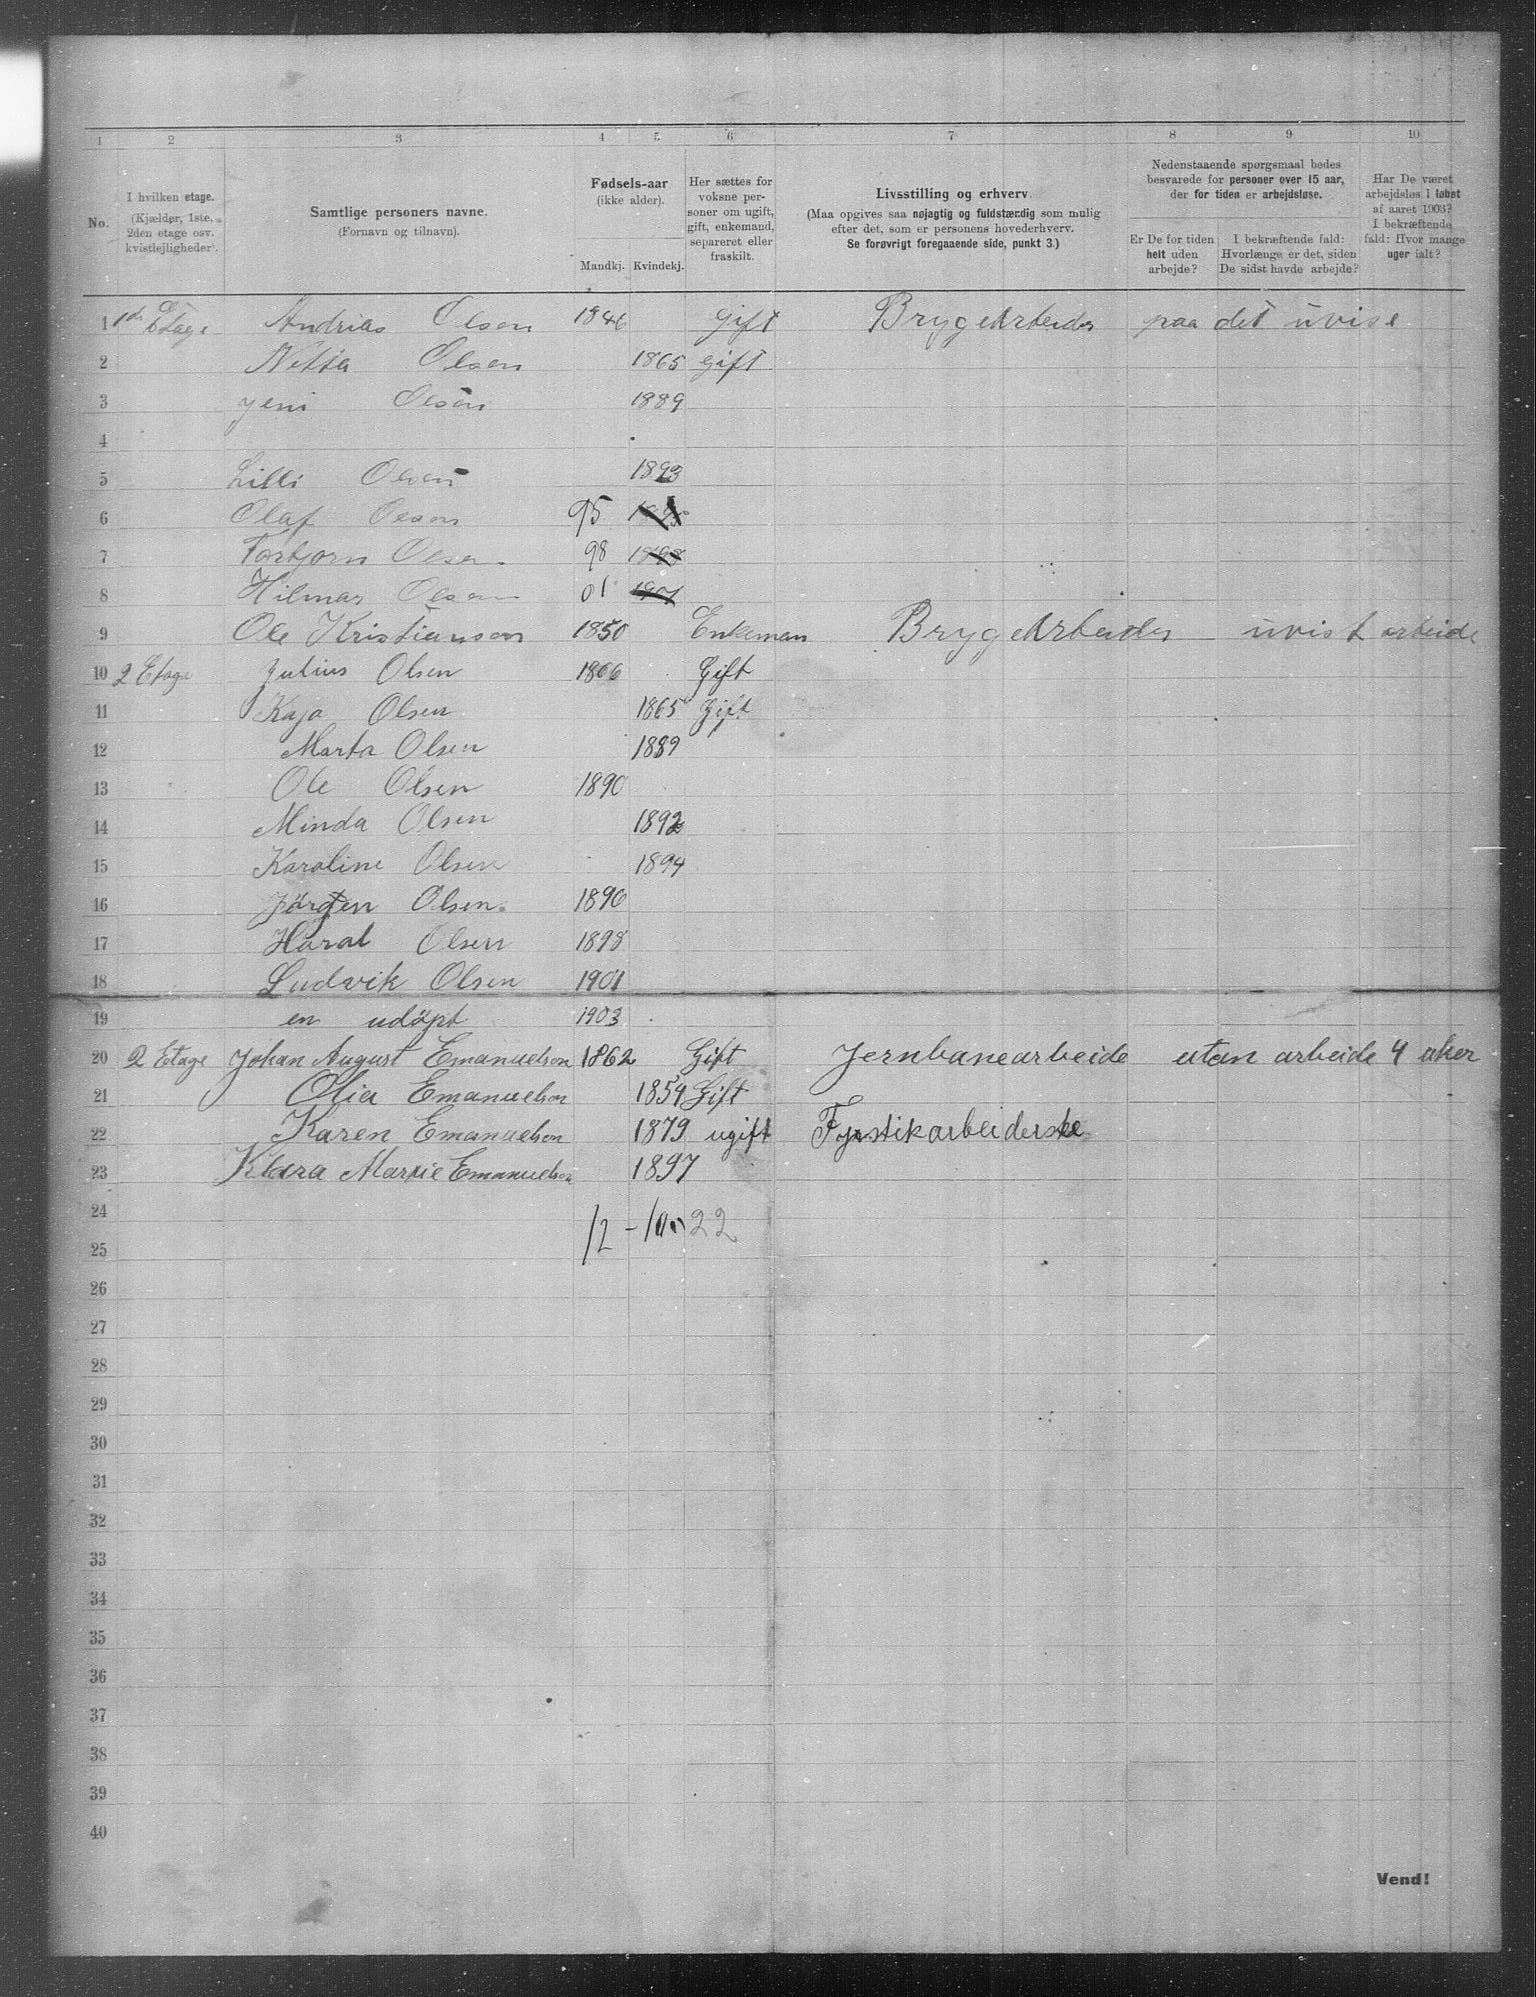 1 2 3 4 5 6 7 8 9 10
No.
I hvilken etage.
(Kjælder, 1ste,
2den etage osv.
kvistlejligheder).
Samtlige personers navne.
(Fornavn og tilnavn).
Fødsels-aar
(ikke alder).
Mandkj. Kvindekj.
Her sættes for
voksne per-
soner om ugift,
gift, enkemand,
separeret eller
fraskilt.
Livsstilling og erhverv.
(Maa opgives saa nøjagtig og fuldstærdig som mulig
efter det, som er personens hovederhverv.
Se forøvrigt foregaaende side, punkt 3.)
Nedenstaaende spørgsmaal bedes
besvarede for personer over 15 aar,
der for tiden er arbejdsløse.
Er De for tiden
helt uden
arbejde?
I bekræftende fald:
Hvorlænge er det, siden
De sidst havde arbejde?
Har De været
arbejdsløs i løbet
af aaret 1903?
I bekræftende
fald: Hvor mange
uger ialt?
1 Etage Andrias Olsen 1846 gift BrygeArbeider paa det uvise
2 Netta Olsen 1865 gift
3 Jeni Olsen 1889
4
5 Lilli Olsen 1893
6 Olaf Olsen 95
7 Torbjorn Olsen 98 1898
8 Hilmar Olsen 01
9 Ole Kristiansen 1850 Enkeman BrygeArbeider uvist arbeide
10 2 Etage Julius Olsen 1866 Gift
11 Kaja Olsen 1865 Gift
12 Marta Olsen 1889
13 Ole Olsen 1890
14 Minda Olsen 1892
15 Karoline Olsen 1894
16 Jörgen Olsen 1896
17 Haral Olsen 1898
18 Ludvik Olsen 1901
19 en udöpt 1903
20 2 Etage Johan August Emanuelson 1862 Gift Jernbanearbeide utan arbeide 4 uker
21 Olia Emanuelson 1854 Gift
22 Karen Emanuelson 1879 ugift Fyrstikarbeiderske
23 Klara Marie Emanuelson 1897
24 12 - 10 22
25
26
27
28
29
30
31
32
33
34
35
36
37
38
39
40
Vend!